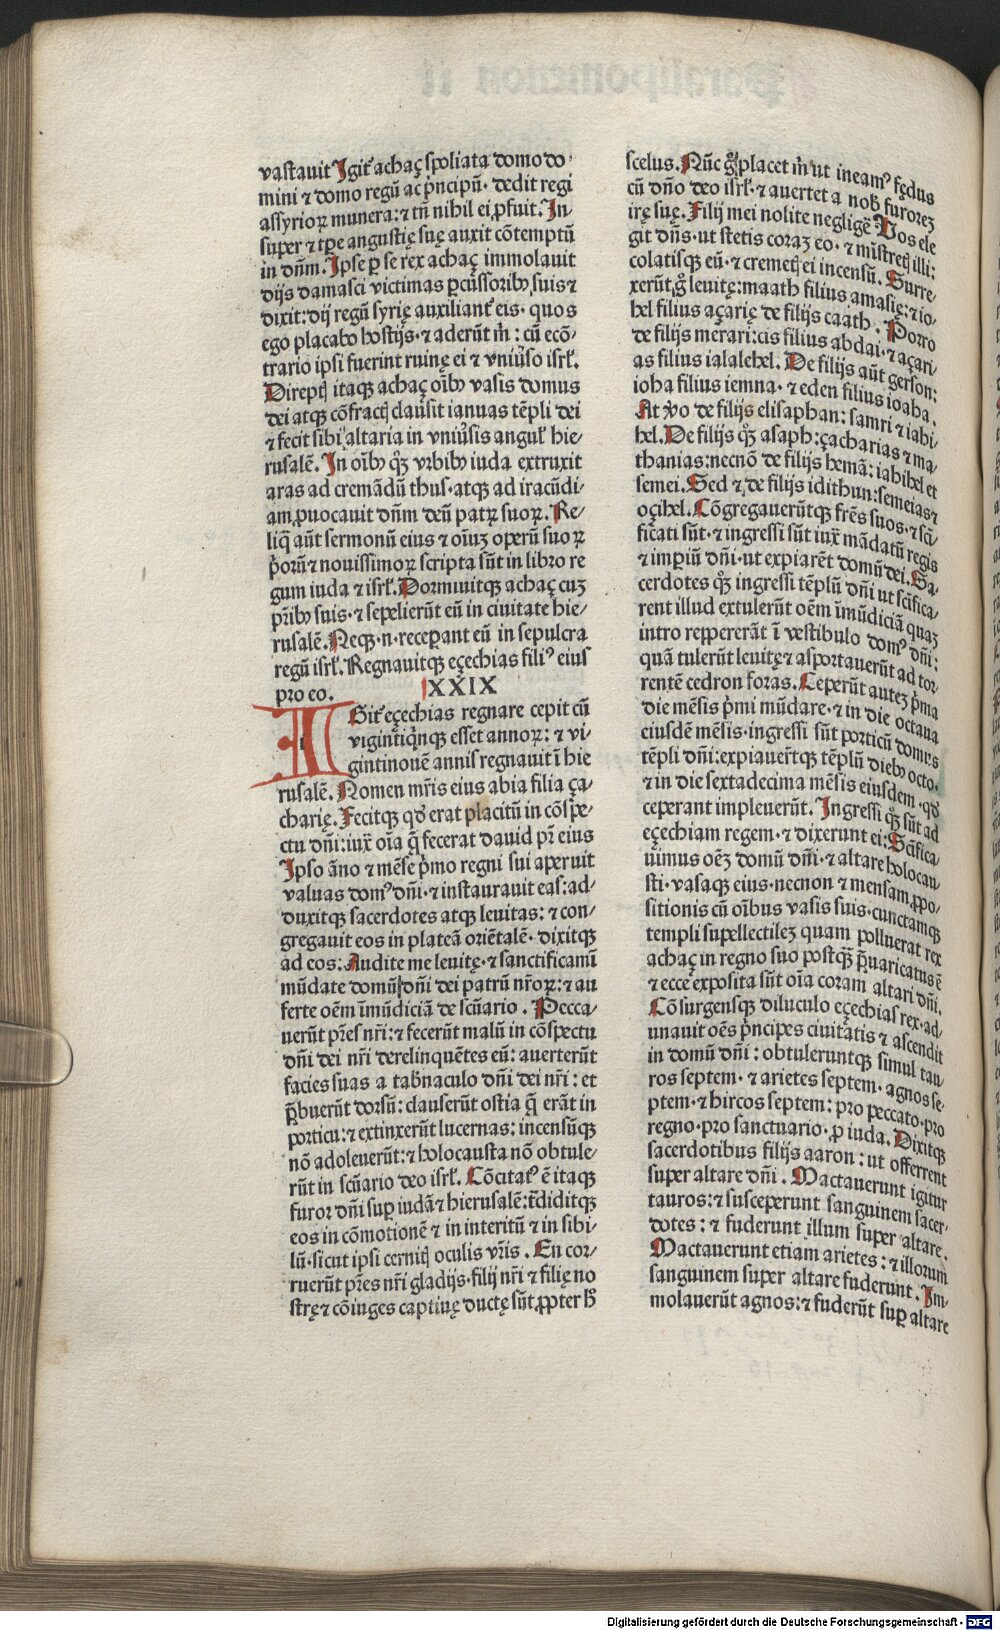 vastauit Igit᷑ achaç spoliata domo do-
mini ⁊ domo regū ac prīncipū· dedit regi
assyrioꝝ munera: ⁊ tn̄ nihil ei ꝓfuit. In-
super ⁊ tꝑe angustię suę auxit cōtemptū
in dn̄m. Ipse ꝑ se rex achaç immolauit
dijs damasci victimas ꝑcussoribꝫ suis ⁊
dixit: dij regū syrię auxiliant᷑ eis· quos
ego placabo hostijs· ⁊ aderūt m̄: cū ecō-
trario ipsi fuerint ruinę ei ⁊ vniu̓so isrl̄.
Direptꝭ itaqꝫ achaç oībꝫ vasis domus
dei atqꝫ cōfractꝭ clausit ianuas tēpli dei
⁊ fecit sibi altaria in vniu̓sis angul᷑ hie-
rusalē. In oībꝫ qꝫ vrbibꝫ iuda extruxit
aras ad cremādū thus· atqꝫ ad iracūdi-
am ꝓuocauit dn̄m deū patrꝝ suoꝝ. Re-
liqͣ aūt sermonū eius ⁊ oīuꝫ operū suoꝝ
p̄orū ⁊ nouissimoꝝ scripta sūt in libro re
gum iuda ⁊ isrl̄. Dormiuitqꝫ achaç cuꝫ
pr̄ibꝫ suis· ⁊ sepelierūt eū in ciuitate hie-
rusalē. Neqꝫ .n. receperant eū in sepulcra
regū isrl̄. Regnauitqꝫ eçechias fili⁹ eius
pro eo. XXIX
IGit᷑ eçechias regnare cepit cū
vigintiqͥnqꝫ esset annoꝝ: ⁊ vi-
gintinouē annis regnauit ī hie
rusalē. Nomen mr̄is eius abia filia ça-
charię. Fecitqꝫ qd̓ erat placitū in cōspe-
ctu dn̄i: iux̄ oīa q̄ fecerat dauid pr̄ eius
Ipso āno ⁊ mēse pͥmo regni sui aperuit
valuas dom⁹ dn̄i· ⁊ instaurauit eas: ad-
duxitqꝫ sacerdotes atqꝫ leuitas: ⁊ con-
gregauit eos in plateā oriētalē· dixitqꝫ
ad eos: Audite me leuitę· ⁊ sanctificamī
mūdate domū dn̄i dei patrū nr̄oꝝ: ⁊ au
ferte oēm īmūdiciā de scūario . Pecca-
uerūt pr̄es nr̄i: ⁊ fecerūt malū in cōspectu
dn̄i dei nr̄i derelinquētes eū: auerterūt
facies suas a tab̓naculo dn̄i dei nr̄i: et
p̄buerūt dorsū: clauserūt ostia q̄ erāt in
porticu: ⁊ extinxerūt lucernas: incensūqꝫ
nō adoleuerūt: ⁊ holocausta nō obtule-
rūt in scūario deo isrl̄. Cōcitat᷑ ē itaqꝫ
furor dn̄i suꝑ iudā ⁊ hierusalē: t̄diditqꝫ
eos in cōmotionē ⁊ in interitū ⁊ in sibi-
lū· sicut ipsi cernitꝭ oculis vr̄is . En cor-
ruerūt pr̄es nr̄i gladijs· filij nr̄i ⁊ filię no
strę ⁊ cōiuges captiuę ductę sūt ꝓpter h̄
scelus. Nūc g̊ placet m̄ ut ineam⁹ fędus
cū dn̄o deo isrl̄· ⁊ auertet a nob̄ furoreꝫ
irę suę. Filij mei nolite negligē Vos ele
git dn̄s· ut stetis coraꝫ eo· ⁊ mīstretꝭ illi:
colatisqꝫ eū· ⁊ cremetꝭ ei incensū. Surre-
xerūt g̊ leuitę: maath filius amasię: ⁊ io-
hel filius açarię de filijs caath . Porro
de filijs merari: cis filius abdai· ⁊ açari-
as filius ialalehel. De filijs aūt gerson:
ioha filius iemna· ⁊ eden filius ioaha.
At ꝟo de filijs elisaphan: samri ⁊ iahi-
hel. De filijs qꝫ asaph: çacharias ⁊ ma-
thanias: necnō de filijs hemā: iahihel et
semei. Sed ⁊ de filijs idithun: semeias ⁊
oçihel. Cōgregauerūtqꝫ frēs suos· ⁊ scī-
ficati sūt· ⁊ ingressi sūt iux̄ mādatū regis
⁊ imperiū dn̄i· ut expiarēt domū dei. Sa-
cerdotes qꝫ ingressi tēplū dn̄i ut scīfica-
rent illud extulerūt oēm īmūdiciā quaꝫ
intro reꝑpererāt ī vestibulo dom⁹ dn̄i:
quā tulerūt leuitę ⁊ asportauerūt ad tor-
rentē cedron foras. Ceperūt auteꝫ pͥma
die mēsis pͥmi mūdare· ⁊ in die octaua
eiusdē mēsis· ingressi sūt porticū domus
tēpli dn̄i: expiauer̄tqꝫ tēplū diebꝫ octo·
⁊ in die sextadecima mēsis eiusdem· qd̓
ceperant impleuerūt. Ingressi qꝫ sūt ad
eçechiam regem· ⁊ dixerunt ei: Sāfica-
uimus oēꝫ domū dn̄i· ⁊ altare holocau-
sti· vasaqꝫ eius· necnon ⁊ mensam ꝓpo-
sitionis cū oībus vasis suis· cunctamqꝫ
templi supellectileꝫ quam polluerat rex
achaç in regno suo postqͣꝫ p̄uaricatus ē
⁊ ecce exposita sūt oīa coram altari dn̄i.
Cōsurgensqꝫ diluculo eçechias rex· ad-
unauit oēs pͥncipes ciuitatis ⁊ ascendit
in domū dn̄i: obtuleruntqꝫ simul tau
ros septem· ⁊ arietes septem· agnos se-
ptem· ⁊ hircos septem: pro peccato· pro
regno· pro sanctuario· ꝓ iuda. Dixitqꝫ
sacerdotibus filijs aaron: ut offerrent
super altare dn̄i . Mactauerunt igitur
tauros: ⁊ susceperunt sanguinem sacer-
dotes: ⁊ fuderunt illum super altare.
Mactauerunt etiam arietes: ⁊ illorum
sanguinem super altare fuderunt. Im-
molauerūt agnos: ⁊ fuderūt suꝑ altare
Digitalisierung gefördert durch die Deutsche Forschungsgemeinschaft - DFG